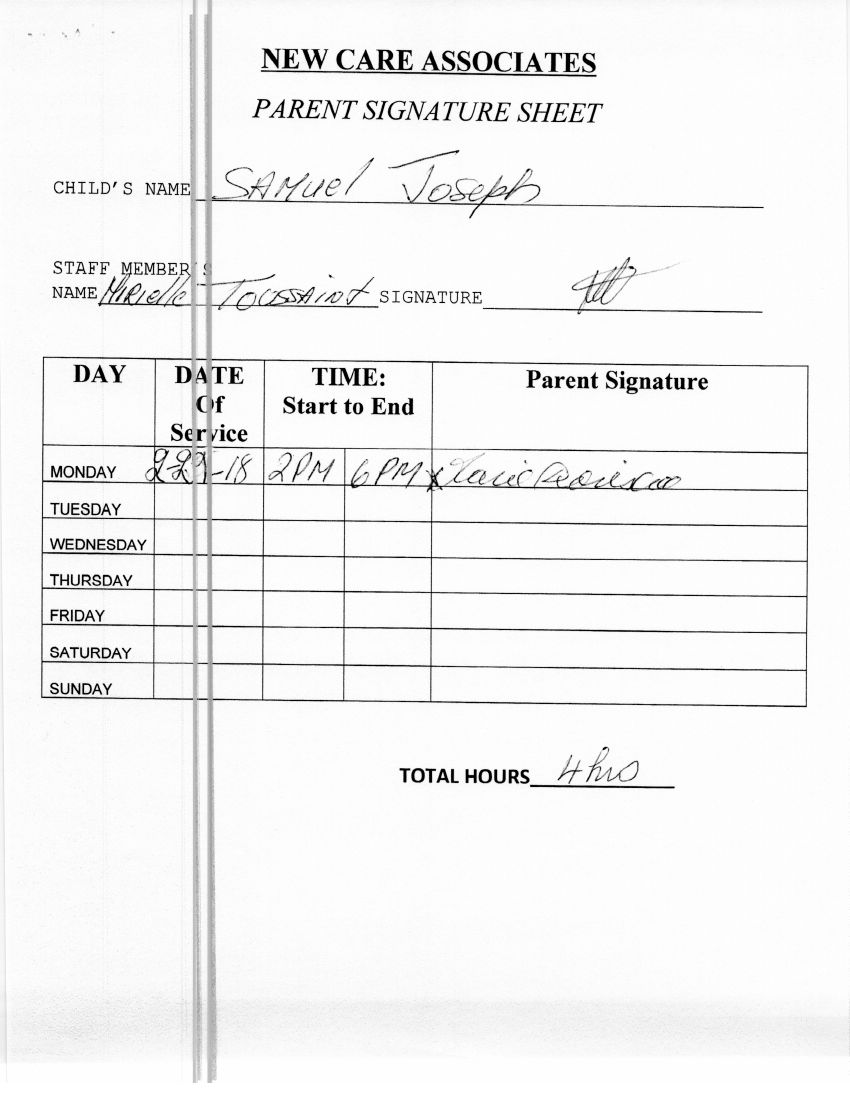 NEW CARE ASSOCIATES
PARENT SIGNATURE SHEET
CHILD'S NAME Samuel Joseph
STAFF MEMBER'S
NAME Mirielle Toussaint SIGNATURE
DAY DATE Of Service TIME: Start to End Parent Signature
MONDAY 2PM 6PM
TUESDAY
WEDNESDAY
THURSDAY
FRIDAY
SATURDAY
SUNDAY
TOTAL HOURS 4hrs